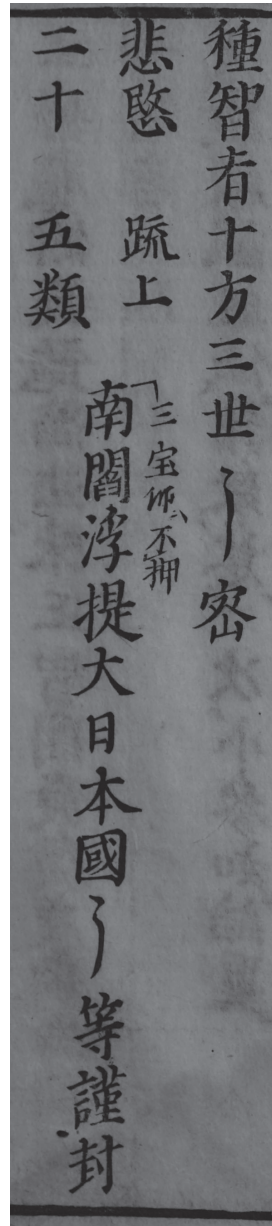 種智者十方三世〻密
悲愍　疏上
三宝印ハ不押
南閻浮提大日本國〻等謹封
二十　五類